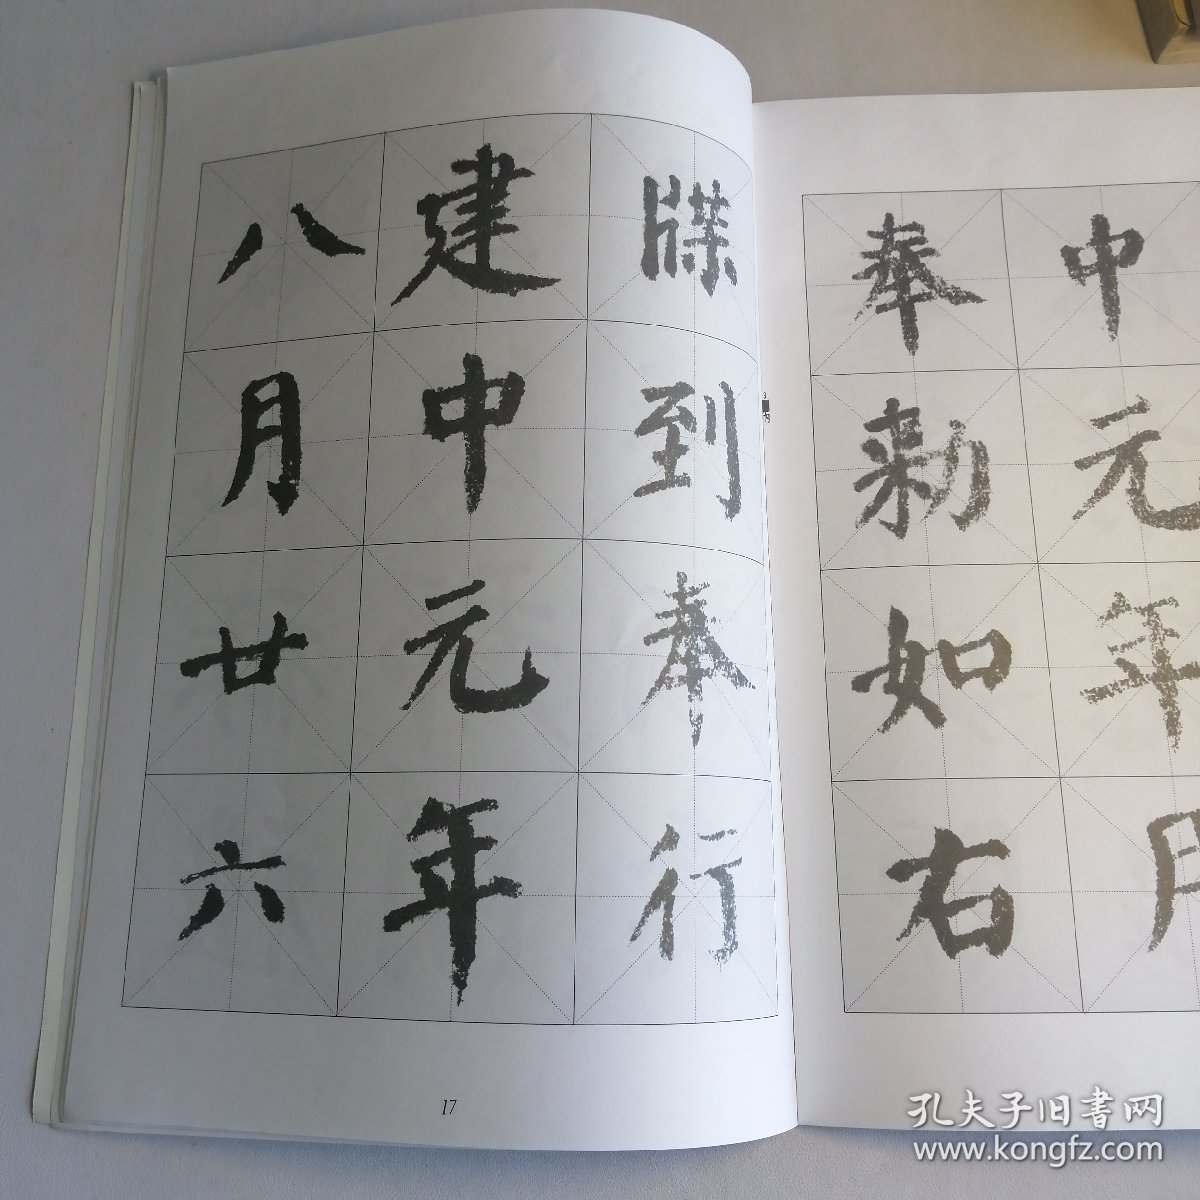 中元年
奉勑如右
牒到奉行
建中元年
八月廿六
17
孔夫子旧書网
www.kongfz.com